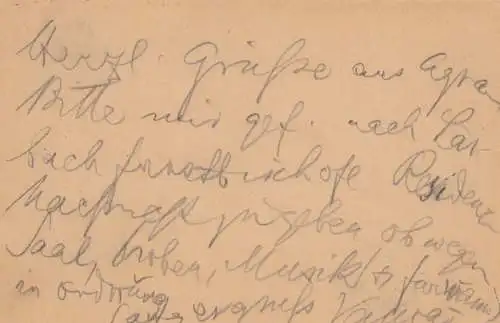 Herzl. Grüße aus Agram
Bitte mir gef. nach Lai-
bach fürstbischöfl Residenz
Nachricht zu geben ob wegen
Saal, Proben, Musik
in Ordnung